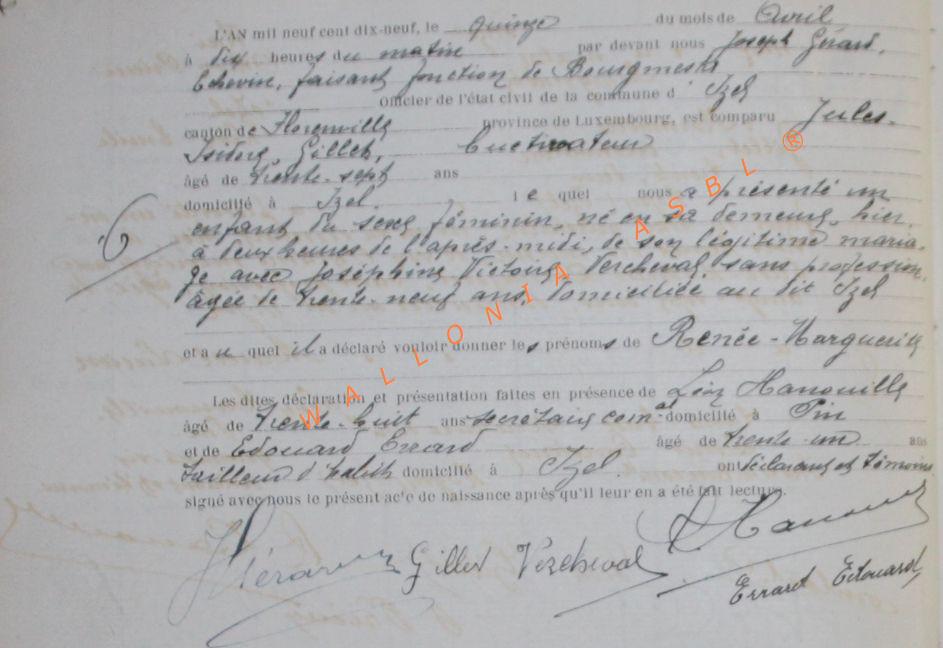 L'AN mil neuf cent dix-neuf, le quinze du mois de Avril
à dix heures du matin par devant nous Joseph Gérard,
Echevin, faisant fonction de Bourgmestre
Officier de l'état civil de la commune d'Izel
canton de Florenville province de Luxembourg, est comparu Jules-
Isidore Gillet, Cultivateur
âgé de trente-sept ans
domicilié à Izel. le quel nous a présenté un
enfant du sexe féminin, né en sa demeure, hier
à deux heures de l'après-midi, de son légitime maria-
ge avec Joséphine Victoire Vercheval, sans profession,
âgée de trente-neuf ans, domiciliée au dit Izel
6
et au quel il a déclaré vouloir donner les prénoms de Renée-Marguerite
Les dites déclaration et présentation faites en présence de Léon Hanouille
âgé de trente-huit ans secrétaire com-al domicilié à Pin
et de Edouard Errard âgé de trente-un ans
tailleur d'habits domicilié à Izel. ont déclarant et témoins
signé avec nous le présent acte de naissance après qu'il leur en a été fait lecture.
JGérard Gillet Vercheval LHanouille
Errard Edouard
WALLONIA ASBL ®